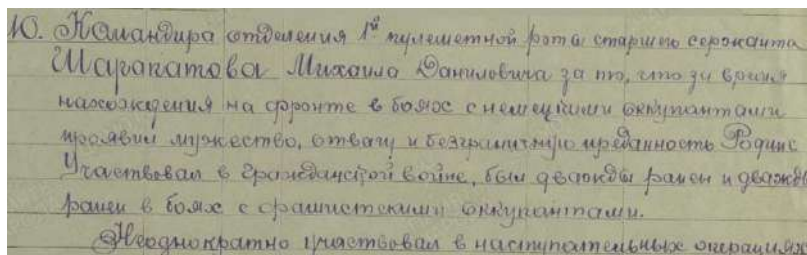 10. Командира отделения 1й пулеметной рота старшего сержанта
Шарапатова Михаила Даниловича за то, что за время
нахождения на фронте в боях с немецкими оккупантами
проявил мужество, отвагу и безграничную преданность Родине
Участвовал в гражданской войне, был дважды ранен и дважды
ранен в боях с фашистскими оккупантами.
Неоднократно участвовал в наступательных операциях